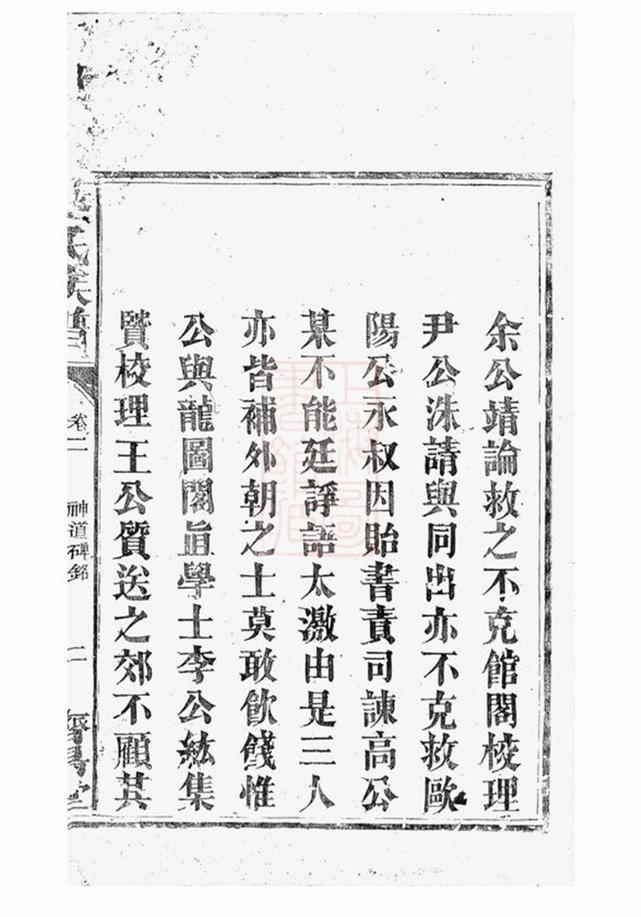 余公靖論救之不克館閣校理
尹公洙請與同出亦不克救歐
陽公永叔因貽書責司諫高公
某不能廷諍語太激由是三人
亦皆補外朝之士莫敢飲餞惟
公與龍圖閣直學士李公紘集
賢校理王公質送之郊不顧其
氏族譜
卷二
神道碑銘
二